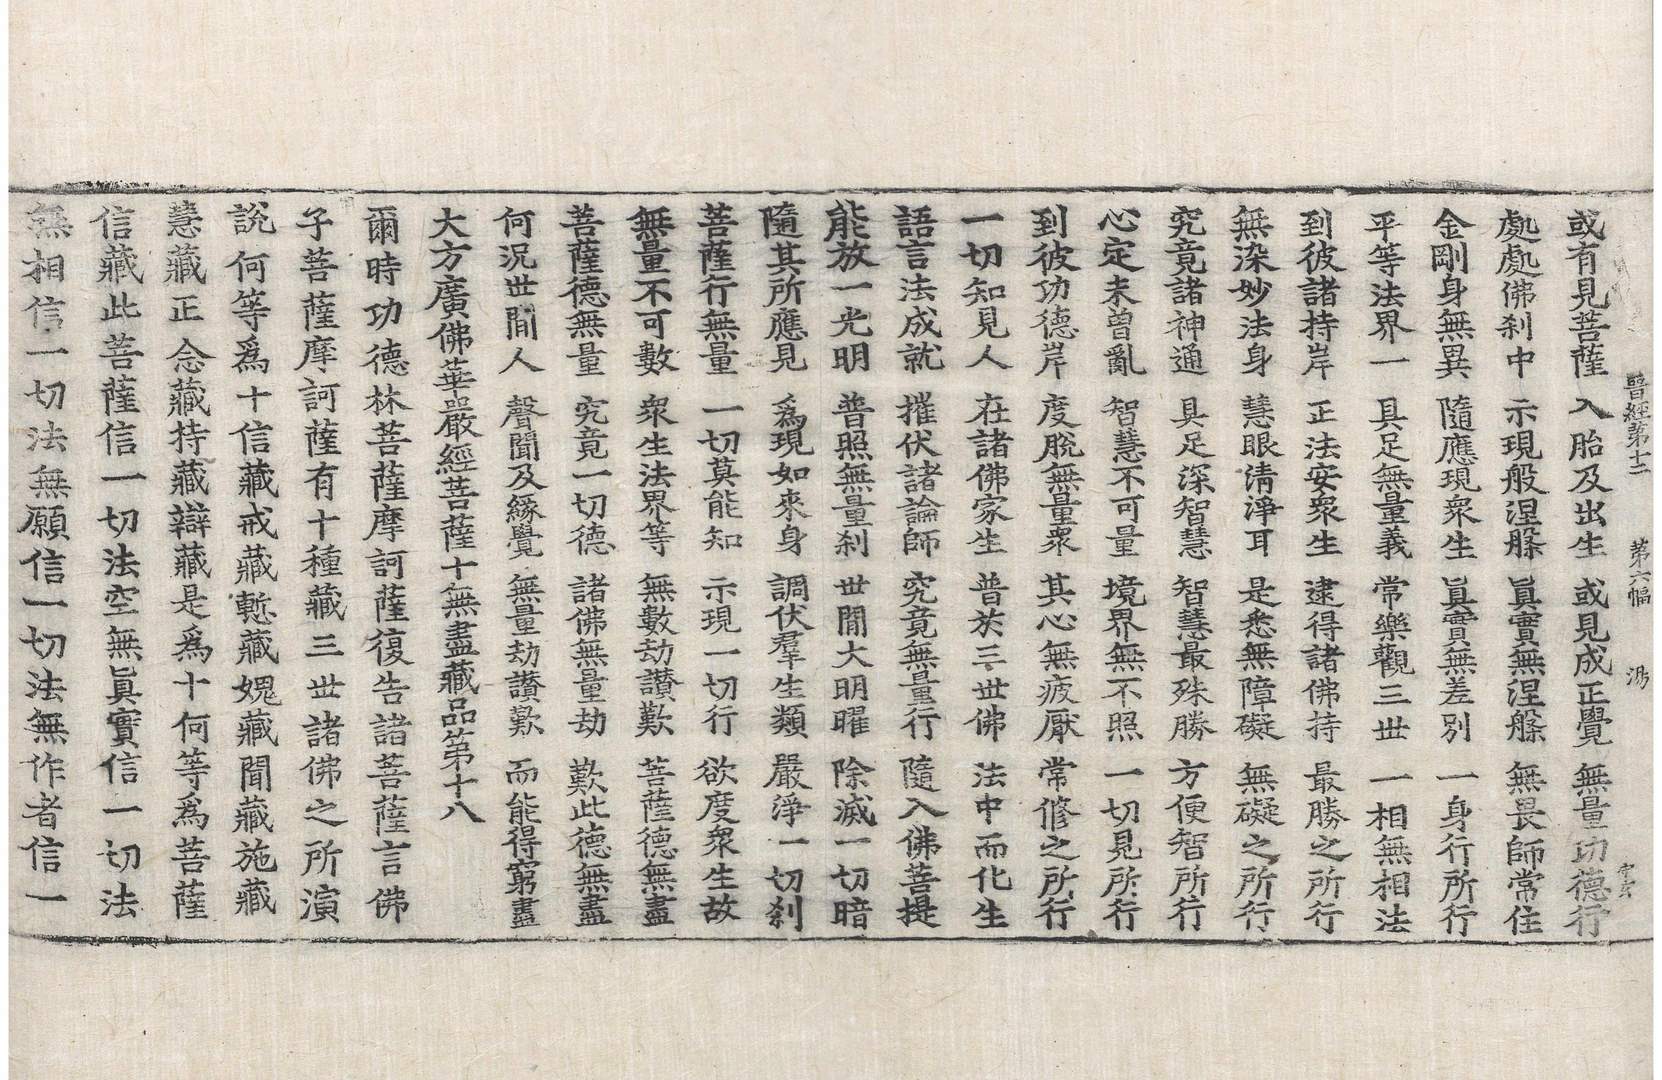 晋經第十二 第六幅 湯
或有見菩薩 入胎及出生 或見成正覺 無量功德行
處處佛刹中 示現般涅槃 眞實無涅槃 無畏師常住
金剛身無異 隨應現衆生 眞實無差別 一身行所行
平等法界一 具足無量義 常樂觀三世 一相無相法
到彼諸持岸 正法安衆生 逮得諸佛持 最勝之所行
無染妙法身 慧眼淸淨耳 是悉無障礙 無礙之所行
究竟諸神通 具足深智慧 智慧最殊勝 方便智所行
心定未曾亂 智慧不可量 境界無不照 一切見所行
到彼功德岸 度脫無量衆 其心無疲厭 常修之所行
一切知見人 在諸佛家生 普於三世佛 法中而化生
語言法成就 摧伏諸論師 究竟無量行 隨入佛菩提
能放一光明 普照無量刹 世間大明曜 除滅一切暗
隨其所應見 爲現如來身 調伏羣生類 嚴淨一切刹
菩薩行無量 一切莫能知 示現一切行 欲度衆生故
無量不可數 衆生法界等 無數劫讃歎 菩薩德無盡
菩薩德無量 究竟一切德 諸佛無量劫 歎此德無盡
何況世間人 聲聞及緣覺 無量劫讃歎 而能得窮盡
大方廣佛華嚴經菩薩十無盡藏品第十八
爾時功德林菩薩摩訶薩復告諸菩薩言佛
子菩薩摩訶薩有十種藏三世諸佛之所演
說何等爲十信藏戒藏慙藏媿藏聞藏施藏
慧藏正念藏持藏辯藏是爲十何等爲菩薩
信藏此菩薩信一切法空無眞實信一切法
無相信一切法無願信一切法無作者信一